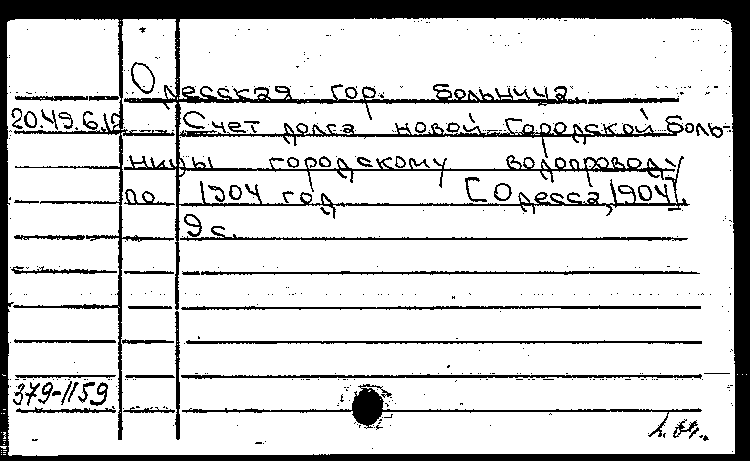 Одесская гор. больница.
20.49.6.12 Счет долга новой Городской Боль-
ницы городскому водопроводу
по 1904 год [Одесса, 1904].
9 с.
379-1159